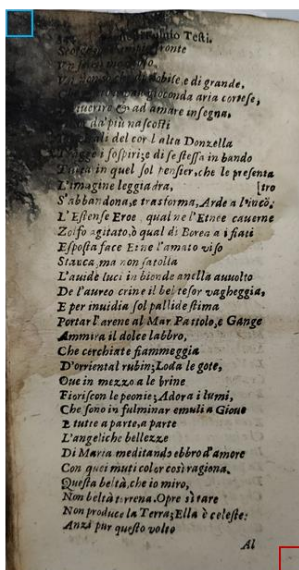 Testi.
fronte
nobile, e di grande,
gioconda aria cortese,
& ad amare insegna,
da' più nascosti
del cor l'alta Donzella
i sospiri; e di se stessa in bando
in quel sol pensier, che le presenta
L'imagine leggiadra, [tro
S'abbandona, e trasforma, Arde a l'inco̅.
L'Estense Eroe, qual ne l'Etnee cauerne
Zolfo agitato, ò qual di Borea a i fiati
Esposta face Etne l'amato viso
Stanca, ma non satolla
L'auide luci in bionde anella auuolto
De l'aureo crine il bel tesor vagheggia,
E per inuidia sol pallide stima
Portar l'arene al Mar Pattolo, e Gange
Ammira il dolce labbro,
Che cerchiate fiammeggia
D'orriental rubin; Loda le gote,
Oue in mezzo a le brine
Fioriscon le peonie; Adora i lumi,
Che sono in fulminar emuli a Gioue
E tutte a parte, a parte
L'angeliche bellezze
Di Maria meditando ebbro d'amore
Con quei muti color così ragiona.
Questa beltà, che io miro,
Non beltà terrena. Opre sì rare
Non produce la Terra; Ella è celeste:
Anzi pur questo volto
Al